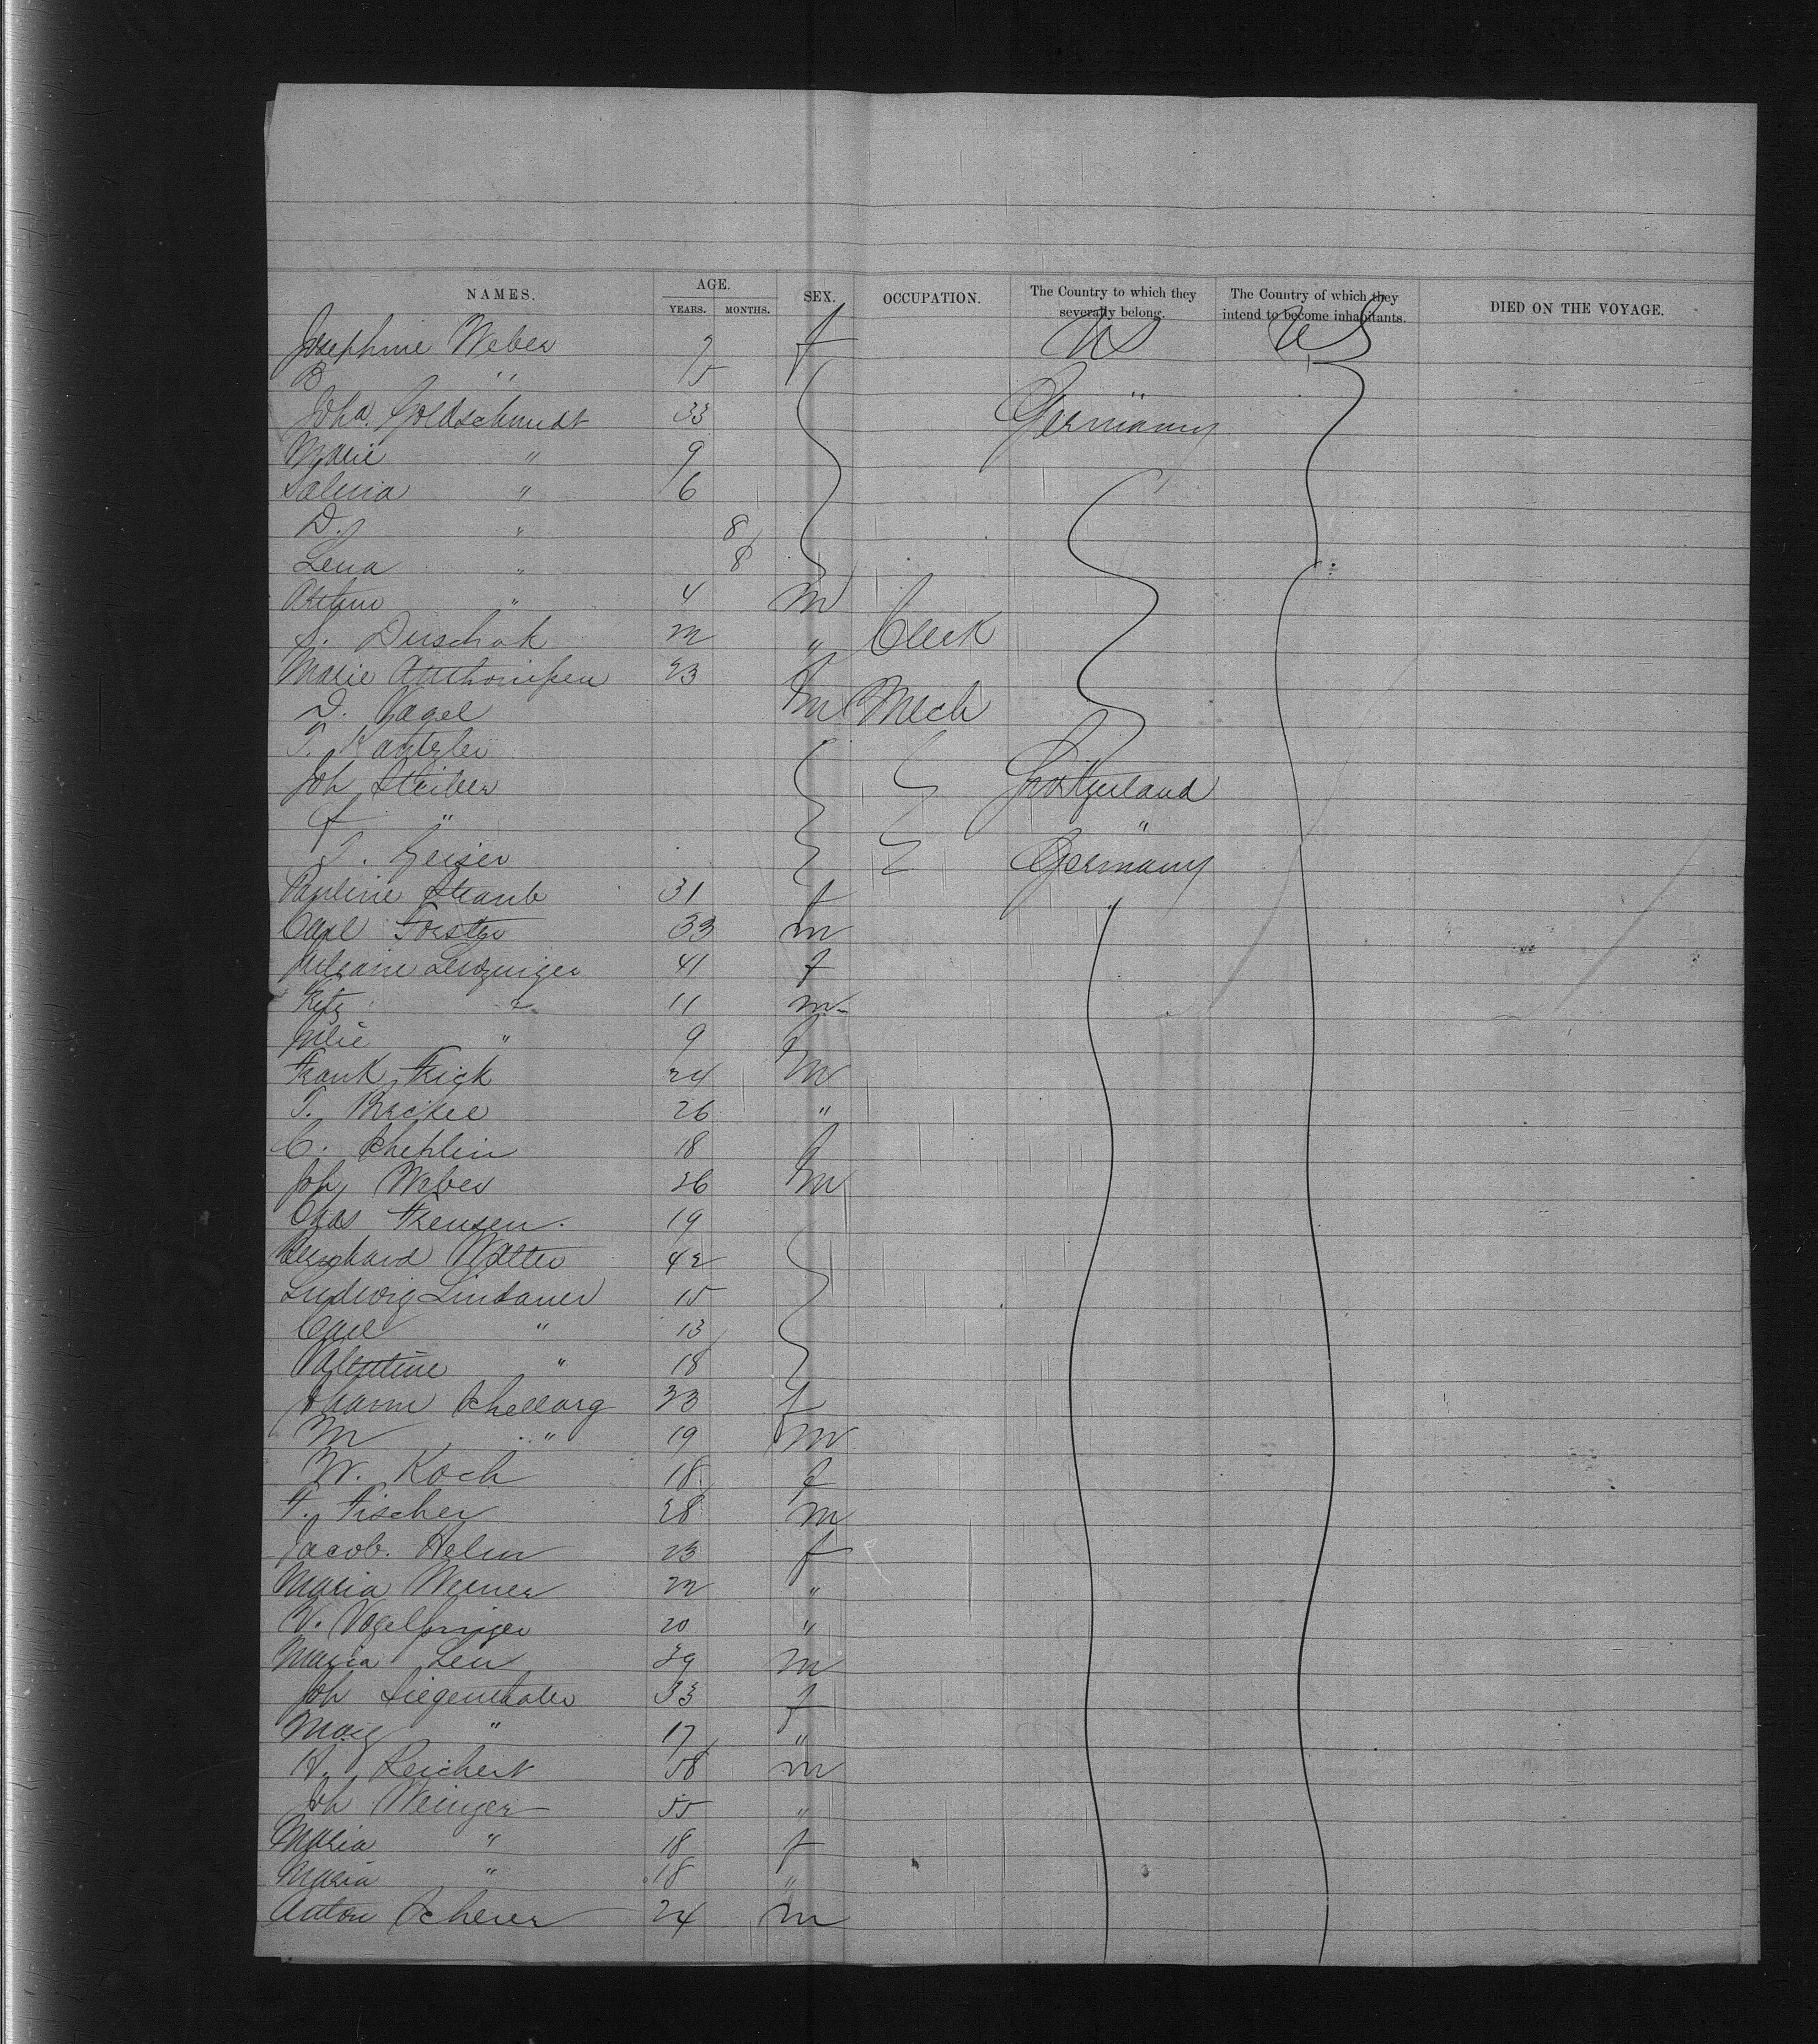 NAMES. AGE. SEX. OCCUPATION. The Country to which they severally belong. The Country of which they intend to become inhabitants. DIED ON THE VOYAGE.
YEARS. MONTHS.
Josephine Weber 7 f US US
B " 5
Joha. Goldschmidt 33 Germany
Marie " 9
" 6
D. " 8
Lena " 8
Arthur " 4 m
S. Duschak 22 " Clerk
Marie 23 f
D. Nagel m Mech
T.
Joh Stieber Switzerland
F " "
J. Geiser Germany
Pauline Straub 31 f
Carl Forster 33 m
41 f
Fritz " 11 m
Julie " 9 f
Frank Frick 24 m
T. 26 "
C. 18 f
Joh Weber 26 m
Chas Frensen. 19
Bernhard Walter 42
Ludwig Lindauer 15
Carl " 13
Valentine " 18
23 f
M " 19 m
W. Koch 18 f
F. Fischer 28 m
Jacob. Helm 23 f
Maria Werner 22 "
V. 20 "
Maria Leu 39 m
Joh Siegenthaler 33 f
" 17 "
H. Reichert 58 m
Joh Weinger 55 "
Maria " 18 f
Maria " 18 "
Anton Scherer 24 m